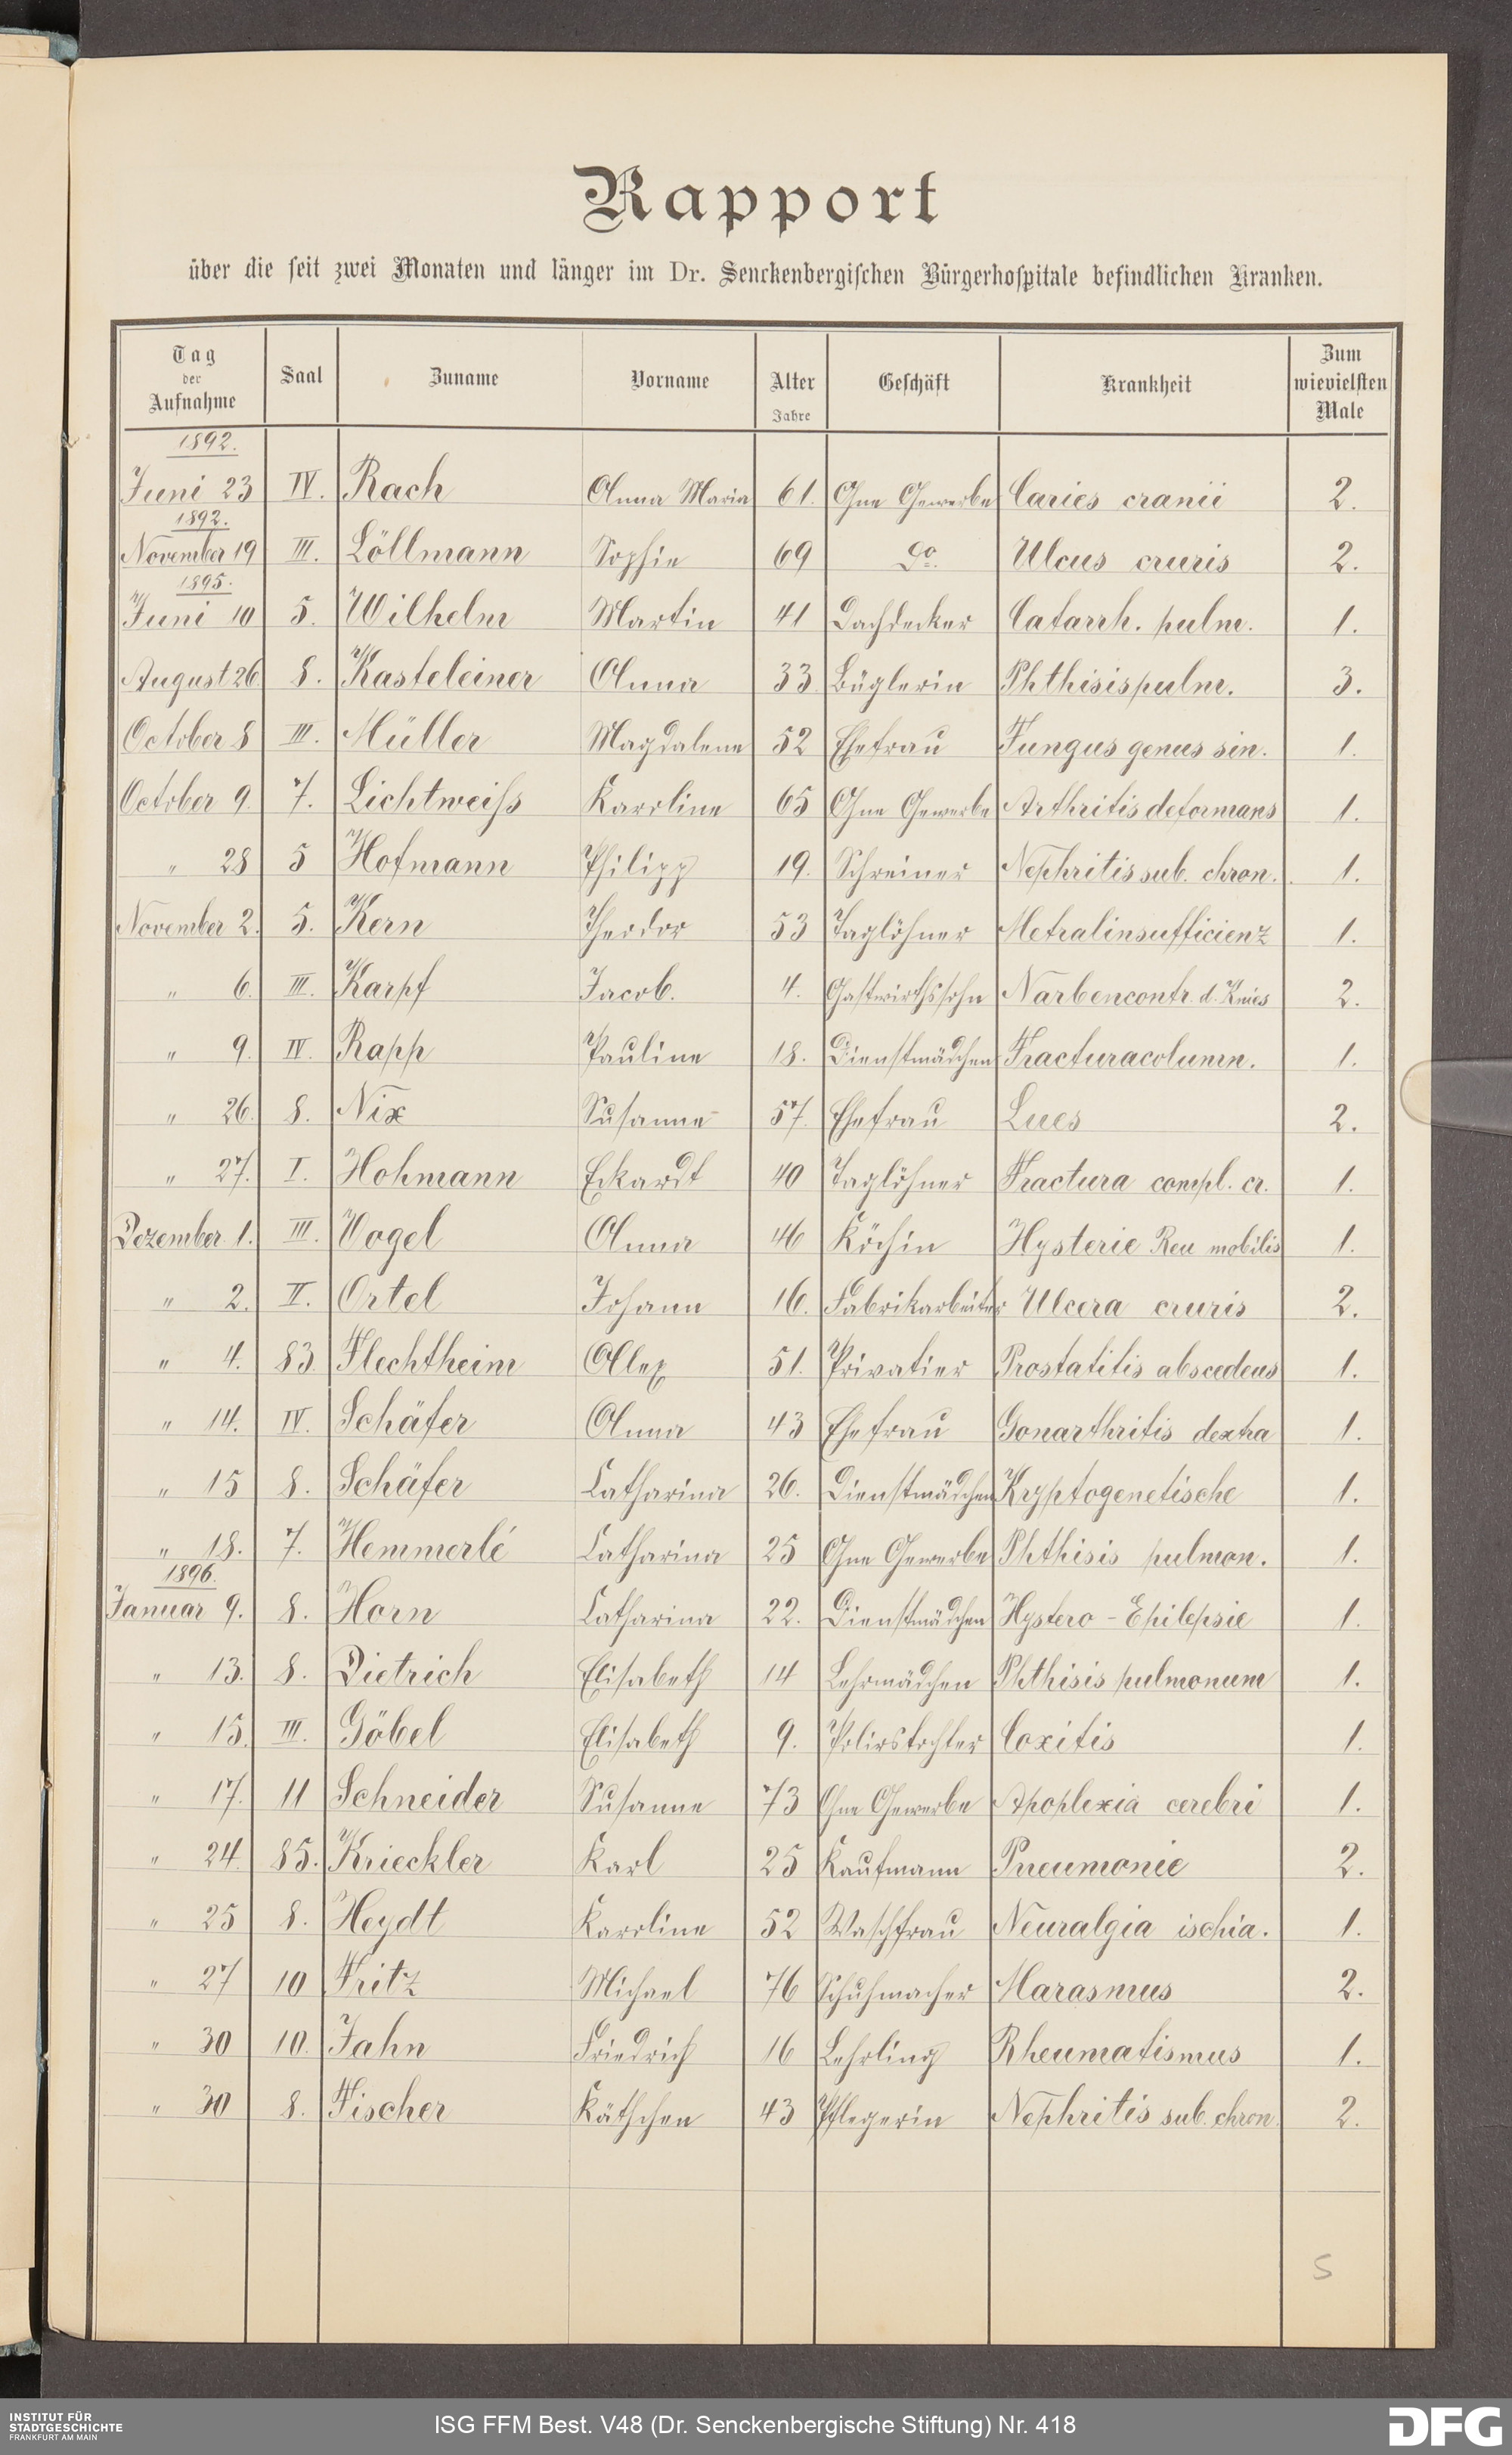 Rapport
über die seit zwei Monaten und länger im Dr. Senckenbergischen Bürgerhospitale befindlichen Kranken.
Tag der Aufnahme Saal Zuname Vorname Alter Jahre Geschäft Krankheit Zum wievielsten Male
1892.
Juni 23 IV. Rach Anna Maria 61. Ohne Gewerbe Caries cranii 2.
1892.
November 19 III. Löllmann Sophie 69 do. Ulcus cruris 2.
1895.
Juni 10 5. Wilhelm Martin 41 Dachdecker Catarrh. pulm. 1.
August 26 8. Kasteleiner Anna 33 Büglerin Phthisis pulm. 3.
October 8 III. Müller Magdalene 52 Ehefrau Fungus genus sin. 1.
October 9. 7. Lichtweiss Karoline 65 Ohne Gewerbe Arthritis deformans 1.
" 28 5 Hofmann Philipp 19. Schreiner Nephritis sub. chron. 1.
November 2. 5. Kern Theodor 53 Taglöhner Metralinsufficienz 1.
" 6. III. Karpf Jacob. 4. Gastwirthssohn Narbencontr. d. Knies 2.
" 9. IV. Rapp Pauline 18. Dienstmädchen Fractura column. 1.
" 26. 8. Nix Susanne 57. Ehefrau Lues 2.
" 27. I. Hohmann Eckardt 40 Taglöhner Fractura compl. cr. 1.
Dezember 1. III. Vogel Anna 46 Köchin Hysterie Ren mobilis 1.
" 2. II. Ortel Johann 16. Fabrikarbeiter Ulcera cruris 2.
" 4. 83. Flechtheim Alex 51. Privatier Prostatitis abscedens 1.
" 14. IV. Schäfer Anna 43 Ehefrau Gonarthritis dextra 1.
" 15 8. Schäfer Catharina 26. Dienstmädchen Kryptogenetische 1.
" 18. 7. Hemmerlé Catharina 25 Ohne Gewerbe Phthisis pulmon. 1.
1896.
Januar 9. 8. Horn Catharina 22. Dienstmädchen Hystero-Epilepsie 1.
" 13. 8. Dietrich Elisabeth 14 Lehrmädchen Phthisis pulmonum 1.
" 15. III. Göbel Elisabeth 9. Polirstochter Coxitis 1.
" 17. 11 Schneider Susanne 73 Ohne Gewerbe Apoplexia cerebri 1.
" 24. 85. Krieckler Karl 25 Kaufmann Pneumonie 2.
" 25 8. Heydt Karoline 52 Waschfrau Neuralgia ischia. 1.
" 27 10 Fritz Michael 76 Schuhmacher Marasmus 2.
" 30 10. Jahn Friedrich 16 Lehrling Rheumatismus 1.
" 30 8. Fischer Käthchen 43 Pflegerin Nephritis sub. chron. 2.
5
INSTITUT FÜR
STADTGESCHICHTE
FRANKFURT AM MAIN
ISG FFM Best. V48 (Dr. Senckenbergische Stiftung) Nr. 418
DFG